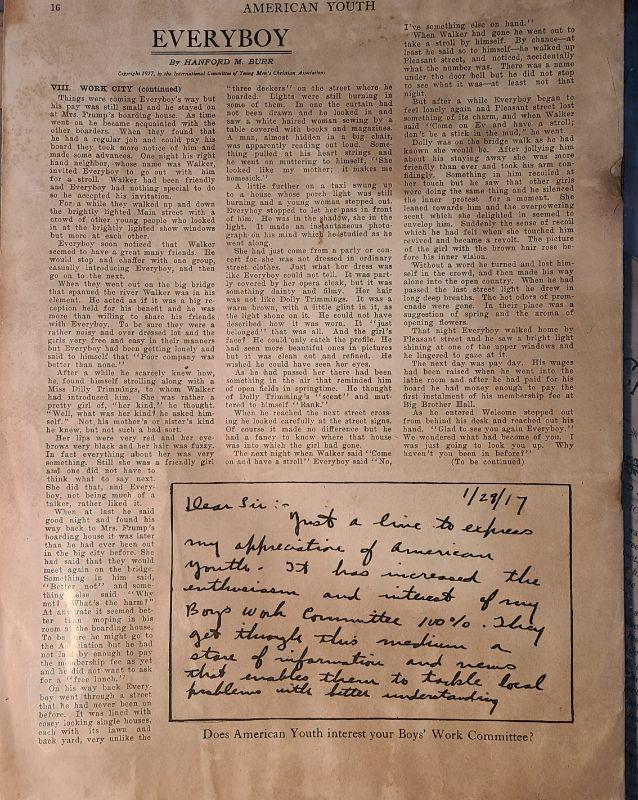 16
AMERICAN YOUTH
EVERYBOY
By HANFORD M. BURR
Copyright 1917, by the International Committee of Young Men's Christian Associations
VIII. WORK CITY (continued)
Things were coming Everyboy's way but
his pay was still small and he stayed on
at Mrs. Prump's boarding house. As time
went on he became acquainted with the
other boarders. When they found that
he had a regular job and could pay his
board they took more notice of him and
made some advances. One night his right
hand neighbor, whose name was Walker,
invited Everyboy to go out with him
for a stroll. Walker had been friendly
and Everyboy had nothing special to do
so he accepted his invitation.
For a while they walked up and down
the brightly lighted Main street with a
crowd of other young people who looked
in at the brightly lighted show windows
but more at each other.
Everyboy soon noticed that Walker
seemed to have a great many friends. He
would stop and chaffer with one group,
casually introducing Everyboy, and then
go on to the next.
When they went out on the big bridge
that spanned the river Walker was in his
element. He acted as if it was a big re-
ception held for his benefit and he was
more than willing to share his friends
with Everyboy. To be sure they were a
rather noisy and over dressed lot and the
girls very free and easy in their manners
but Everyboy had been getting lonely and
said to himself that "Poor company was
better than none."
After a while he scarcely knew how,
he found himself strolling along with a
Miss Dily Trimmings, to whom Walker
had introduced him. She was rather a
pretty girl of, "her kind," he thought.
"Well, what was her kind? he asked him
self." Not his mother's or sister's kind
he knew, but not such a bad sort.
Her lips were very red and her eye-
brows very black and her hair was fuzzy.
In fact everything about her was very
something. Still she was a friendly girl
and one did not have to
think what to say next.
She did that, and Every-
boy, not being much of a
talker, rather liked it.
When at last he said
good night and found his
way back to Mrs. Prump's
boarding house it was later
than he had ever been out
in the big city before. She
had said that they would
meet again on the bridge.
Something in him said,
"Better not" and some-
thing else said "Why
not? What's the harm?"
At any rate it seemed bet-
ter than moping in his
room at the boarding house.
To be sure he might go to
the Association but he had
not laid by enough to pay
the membership fee as yet
and he did not want to ask
for a "free lunch."
On his way back Every-
boy went through a street
that he had never been on
before. It was lined with
cosey looking single houses,
each with its lawn and
back yard, very unlike the
"three deckers" on the street where he
boarded. Lights were still burning in
some of them. In one the curtain had
not been drawn and he looked in and
saw a white haired woman sewing by a
table covered with books and magazines.
A man, almost hidden in a big chair,
was apparently reading out loud. Some-
thing pulled at his heart strings and
he went on muttering to himself, "She
looked like my mother; it makes me
homesick."
A little further on a taxi swung up
to a house whose porch light was still
burning and a young woman stepped out.
Everyboy stopped to let her pass in front
of him. He was in the shadow, she in the
light. It made an instantaneous photo-
graph on his mind which he studied as he
went along.
She had just come from a party or con-
cert for she was not dressed in ordinary
street clothes. Just what her dress was
like Everyboy could not tell. It was part-
ly covered by her opera cloak, but it was
something dainty and filmy. Her hair
was not like Dolly Trimmings. It was a
warm brown, with a little glint in it, as
the light shone on it. He could not have
described how it was worn. It "just
belonged" that was all. And the girl's
face? He could only catch the profile. He
had seen more beautiful ones in pictures
but it was clean cut and refined. He
wished he could have seen her eyes.
As he had passed her there had been
something in the air that reminded him
of open fields in springtime. He thought
of Dolly Trimming's "scent" and mut-
tered to himself "Rank."
When he reached the next street cross-
ing he looked carefully at the street signs.
Of course it made no difference but he
had a fancy to know where that house
was into which the girl had gone.
The next night when Walker said "Come
on and have a stroll" Everyboy said "No,
I've something else on hand."
When Walker had gone he went out to
take a stroll by himself. By chance—at
least he said so to himself—he walked up
Pleasant street, and noticed, accidentally
what the number was. There was a name
under the door bell but he did not stop
to see what it was—at least not that
night.
But after a while Everyboy began to
feel lonely again and Pleasant street lost
something of its charm, and when Walker
said "Come on Ev and have a stroll;
don't be a stick in the mud," he went.
Dolly was on the bridge walk as he had
known she would be. After jollying him
about his staying away she was more
friendly than ever and took his arm con-
fidingly. Something in him recoiled at
her touch but he saw that other girls
were doing the same thing and he silenced
the inner protest for a moment. She
leaned towards him and the overpowering
scent which she delighted in seemed to
envelop him. Suddenly the sense of recoil
which he had felt when she touched him
revived and became a revolt. The picture
of the girl with the brown hair rose be-
fore his inner vision.
Without a word he turned and lost him-
self in the crowd, and then made his way
alone into the open country. When he had
passed the last street light he drew in
long deep breaths. The hot odors of prom-
enade were gone. In their place was a
suggestion of spring and the aroma of
opening flowers.
That night Everyboy walked home by
Pleasant street and he saw a bright light
shining at one of the upper windows and
he lingered to gaze at it.
The next day was pay day. His wages
had been raised when he went into the
lathe room and after he had paid for his
board he had money enough to pay the
first instalment of his membership fee at
Big Brother Hall.
As he entered Welcome stepped out
from behind his desk and reached out his
hand. "Glad to see you again Everyboy."
We wondered what had become of you. I
was just going to look you up. Why
haven't you been in before?"
(To be continued)
1/28/17
Dear Sir:-
Just a line to express
my appreciation of American
Youth. It has increased the
enthusiasm and interest of my
Boys Work Committee 100%. They
get through this medium a
store of information and news
that enables them to tackle local
problems with better understanding
Does American Youth interest your Boys' Work Committee?